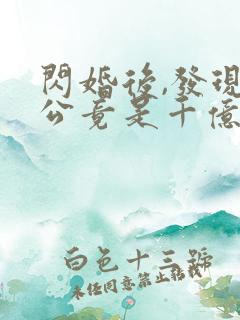 閃婚後,發現
公竟是千億
白色十三號
未經同意禁止轉載